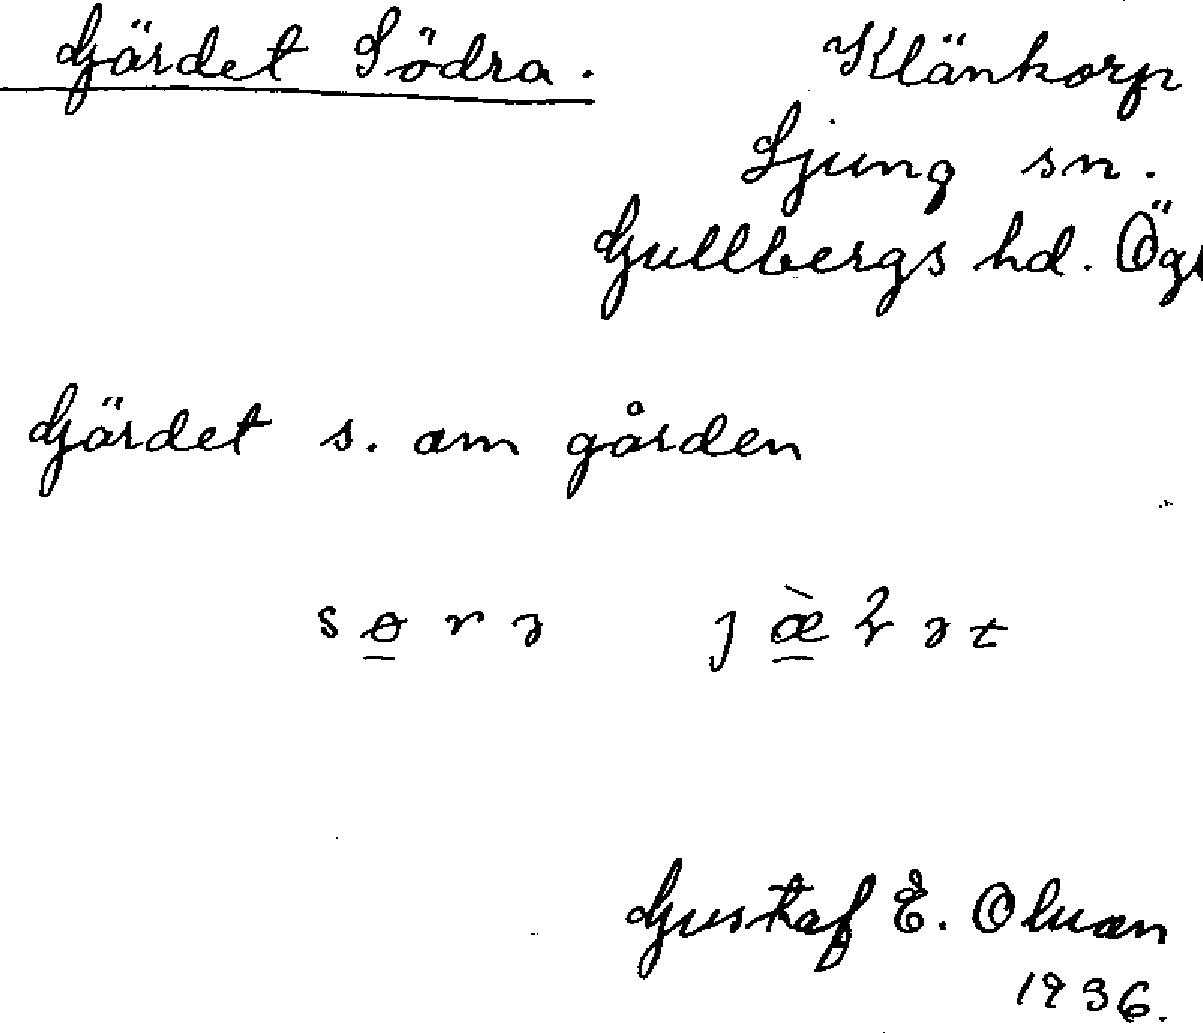 Gärdet Södra.
Klänkorp
Ljung sn.
Gullbergs hd. Ögl
Gärdet s. om gården
Gustaf E. Olson
1936.